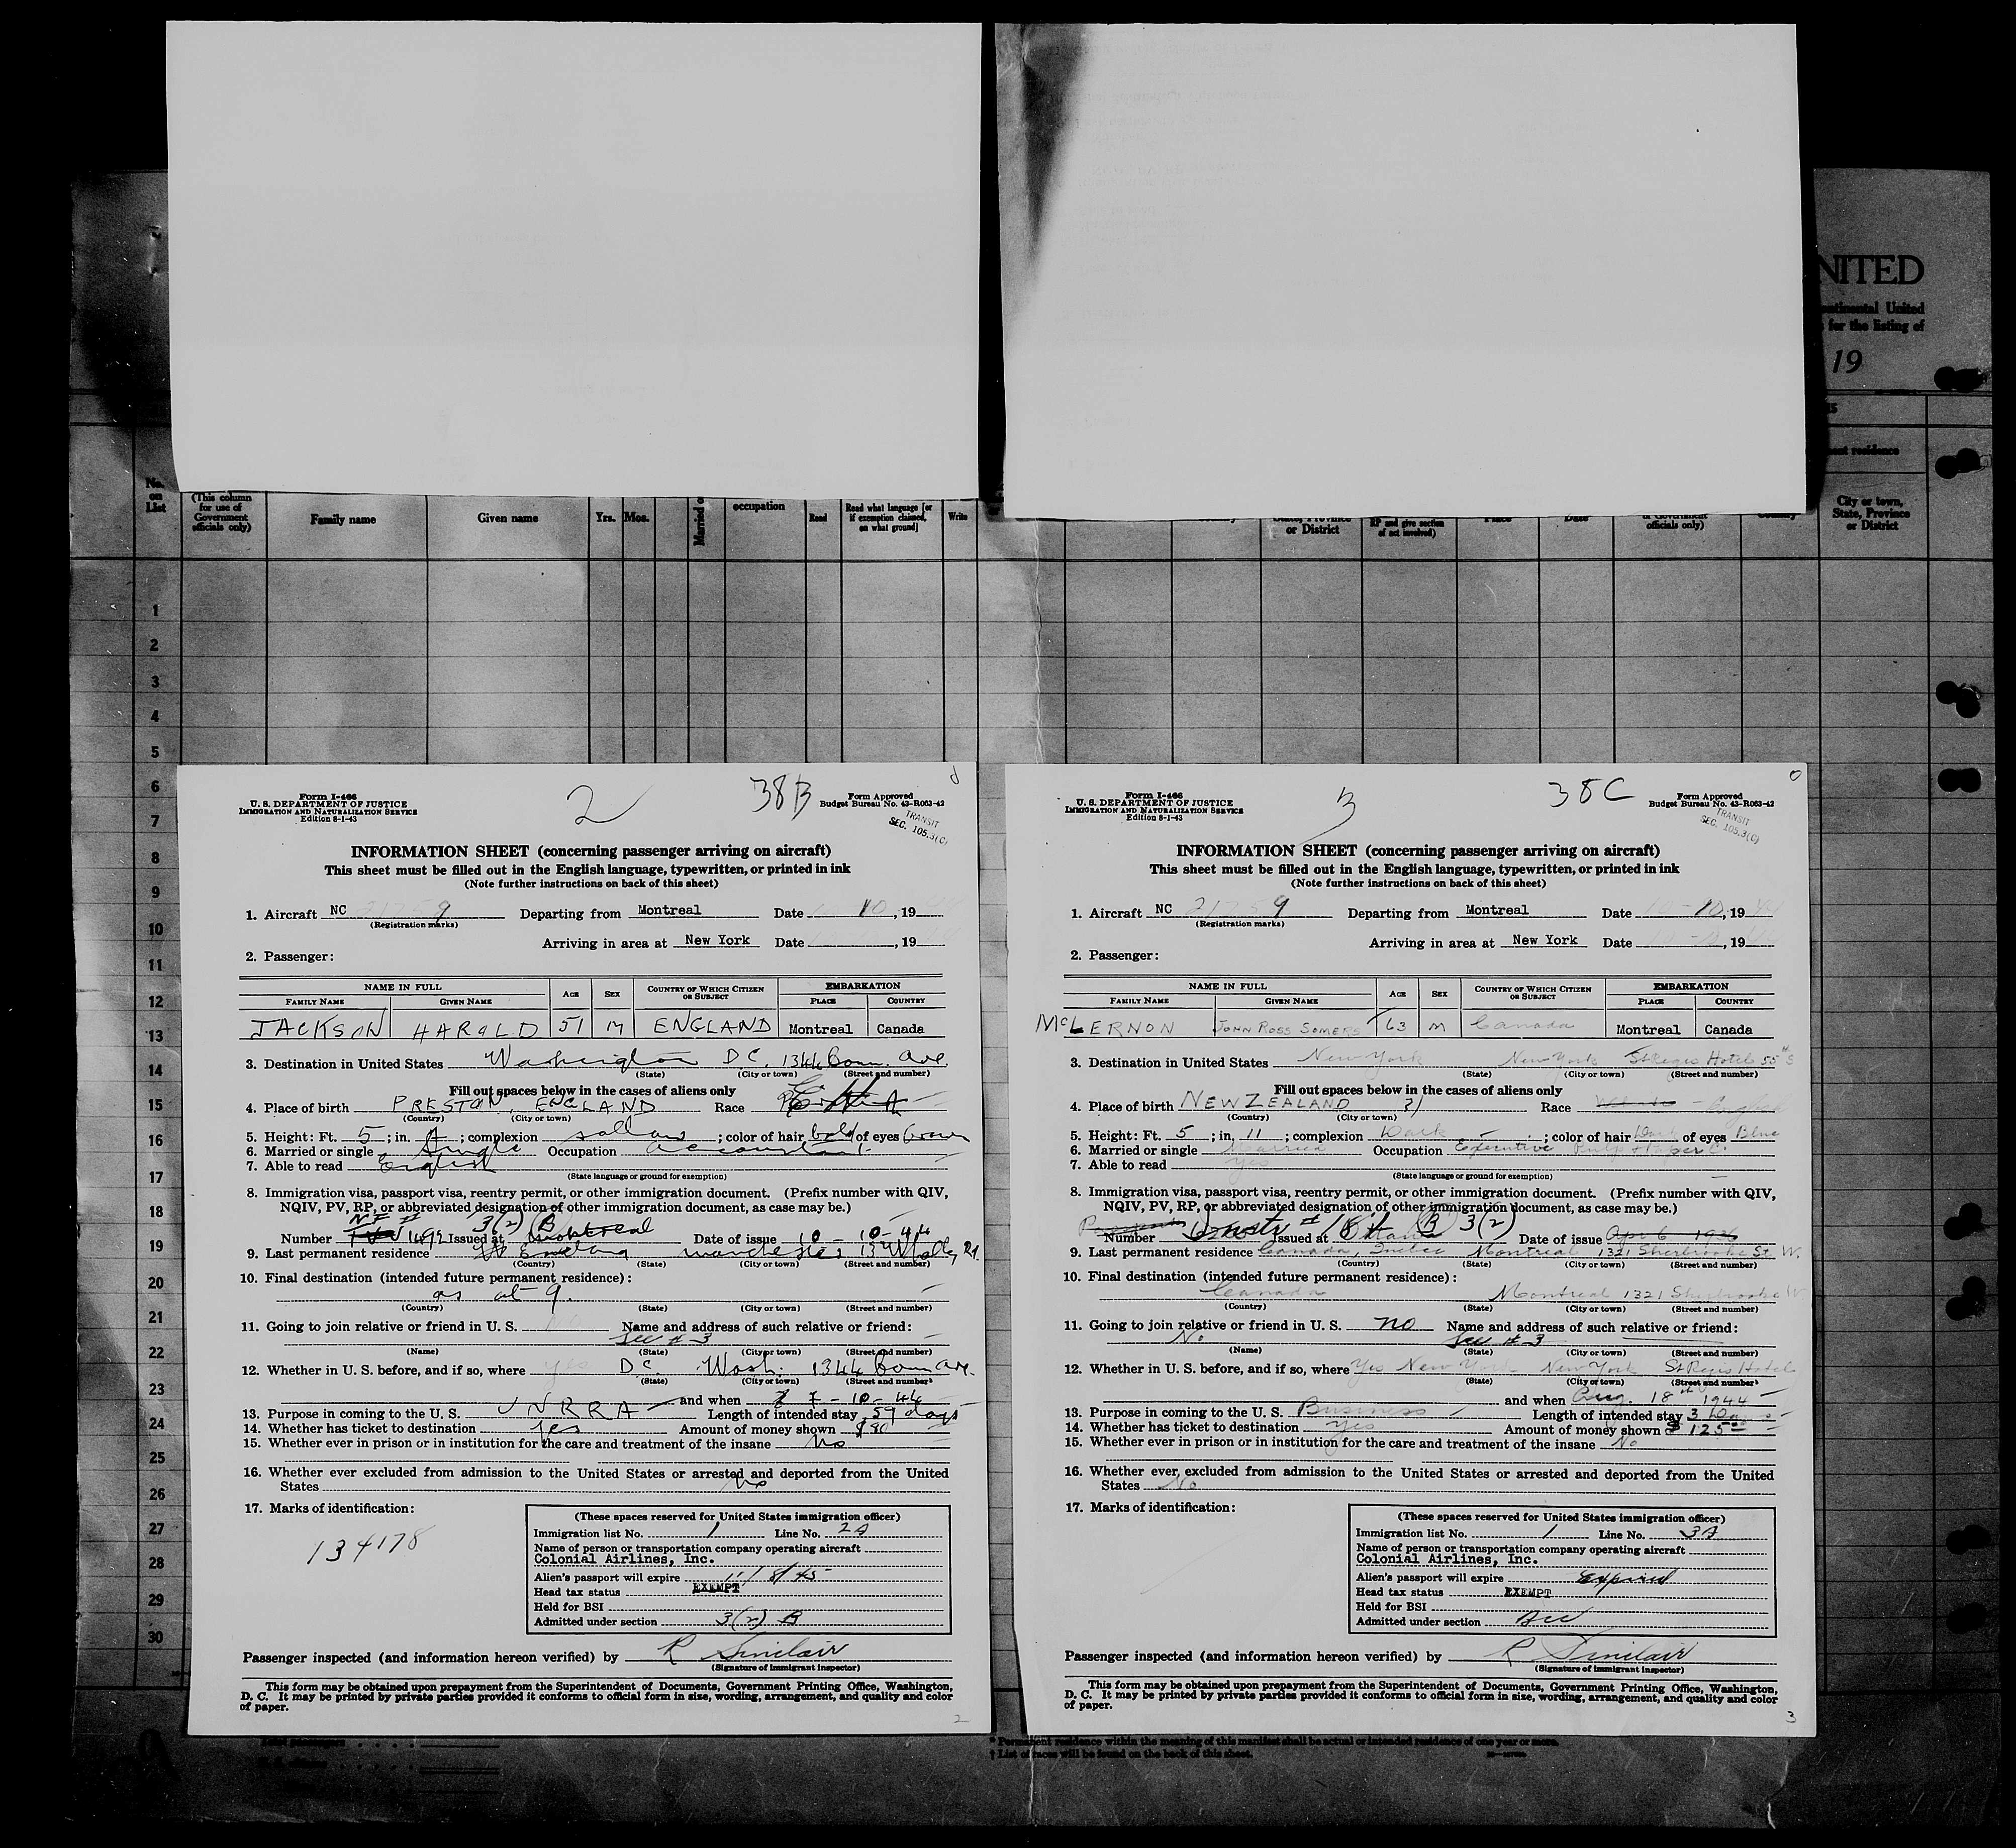 NITED
ntinental United
for the listing of
19
No. on List
(This column for use of Government officials only)
Family name
Given name
Yrs.
Mos.
occupation
Read
Read what language [or if exemption claimed, on what ground]
Write
or District
RP and give section of act involved)
officials only)
City or town, State, Province or District
1
2
3
4
5
6
7
8
9
10
11
12
13
14
15
16
17
18
19
20
21
22
23
24
25
26
27
28
29
30
Form I-466
U. S. DEPARTMENT OF JUSTICE
IMMIGRATION AND NATURALIZATION SERVICE
Edition 8-1-43
2
38B
Form Approved
Budget Bureau No. 43-R063-42
TRANSIT
SEC. 105.3(C)
INFORMATION SHEET (concerning passenger arriving on aircraft)
This sheet must be filled out in the English language, typewritten, or printed in ink
(Note further instructions on back of this sheet)
1. Aircraft NC 21759 Departing from Montreal Date 10, 19
(Registration marks)
Arriving in area at New York Date , 19
2. Passenger:
NAME IN FULL AGE SEX COUNTRY OF WHICH CITIZEN OR SUBJECT EMBARKATION
FAMILY NAME GIVEN NAME PLACE COUNTRY
JACKSON HAROLD 51 M ENGLAND Montreal Canada
3. Destination in United States Washington DC. 1344 Conn. Ave.
(State) (City or town) (Street and number)
Fill out spaces below in the cases of aliens only
4. Place of birth PRESTON, ENGLAND Race
(Country) (City or town)
5. Height: Ft. 5; in. ; complexion sallow; color of hair bald of eyes brown
6. Married or single Single Occupation accountant
7. Able to read English
(State language or ground for exemption)
8. Immigration visa, passport visa, reentry permit, or other immigration document. (Prefix number with QIV,
NQIV, PV, RP, or abbreviated designation of other immigration document, as case may be.)
3(2) (B)
Number 1492 Issued at Montreal Date of issue 10-10-44
9. Last permanent residence England Manchester
(Country) (State) (City or town) (Street and number)
10. Final destination (intended future permanent residence):
as at 9.
(Country) (State) (City or town) (Street and number)
11. Going to join relative or friend in U. S. Name and address of such relative or friend:
See # 3
(Name) (State) (City or town) (Street and number)
12. Whether in U. S. before, and if so, where yes DC Wash. 1344 Conn Ave.
(State) (City or town) (Street and number)
and when 7-10-44
13. Purpose in coming to the U. S. UNRRA Length of intended stay 59 days
14. Whether has ticket to destination yes Amount of money shown $80
15. Whether ever in prison or in institution for the care and treatment of the insane No
16. Whether ever excluded from admission to the United States or arrested and deported from the United
States No
17. Marks of identification:
134178
(These spaces reserved for United States immigration officer)
Immigration list No. 1 Line No. 2A
Name of person or transportation company operating aircraft
Colonial Airlines, Inc.
Alien's passport will expire 11/8/45
Head tax status EXEMPT
Held for BSI
Admitted under section 3(2) B
Passenger inspected (and information hereon verified) by R Sinclair
(Signature of immigrant inspector)
This form may be obtained upon prepayment from the Superintendent of Documents, Government Printing Office, Washington,
D. C. It may be printed by private parties provided it conforms to official form in size, wording, arrangement, and quality and color
of paper.
2
Form I-466
U. S. DEPARTMENT OF JUSTICE
IMMIGRATION AND NATURALIZATION SERVICE
Edition 8-1-43
3
38C
Form Approved
Budget Bureau No. 43-R063-42
TRANSIT
SEC. 105.3(C)
INFORMATION SHEET (concerning passenger arriving on aircraft)
This sheet must be filled out in the English language, typewritten, or printed in ink
(Note further instructions on back of this sheet)
1. Aircraft NC 21759 Departing from Montreal Date 10-10, 1944
(Registration marks)
Arriving in area at New York Date , 19
2. Passenger:
NAME IN FULL AGE SEX COUNTRY OF WHICH CITIZEN OR SUBJECT EMBARKATION
FAMILY NAME GIVEN NAME PLACE COUNTRY
McLERNON JOHN ROSS SOMERS 63 M Canada Montreal Canada
3. Destination in United States New York New York St Regis Hotel 55th S
(State) (City or town) (Street and number)
Fill out spaces below in the cases of aliens only
4. Place of birth NEW ZEALAND Race English
(Country) (City or town)
5. Height: Ft. 5; in. 11; complexion Dark; color of hair Dark of eyes Blue
6. Married or single Married Occupation Executive Pulp & Paper C.
7. Able to read Yes
(State language or ground for exemption)
8. Immigration visa, passport visa, reentry permit, or other immigration document. (Prefix number with QIV,
NQIV, PV, RP, or abbreviated designation of other immigration document, as case may be.)
(B) 3(2)
Number Issued at Ottawa Date of issue Apr 6 1936
9. Last permanent residence Canada, Quebec Montreal 1321 Sherbrooke St. W.
(Country) (State) (City or town) (Street and number)
10. Final destination (intended future permanent residence):
Canada Montreal 1321 Sherbrooke W
(Country) (State) (City or town) (Street and number)
11. Going to join relative or friend in U. S. no Name and address of such relative or friend:
No See # 3
(Name) (State) (City or town) (Street and number)
12. Whether in U. S. before, and if so, where Yes New York New York St Regis Hotel
(State) (City or town) (Street and number)
and when Aug. 18th 1944
13. Purpose in coming to the U. S. Business Length of intended stay 3
14. Whether has ticket to destination Yes Amount of money shown $125
15. Whether ever in prison or in institution for the care and treatment of the insane No
16. Whether ever excluded from admission to the United States or arrested and deported from the United
States No
17. Marks of identification:
(These spaces reserved for United States immigration officer)
Immigration list No. 1 Line No. 3A
Name of person or transportation company operating aircraft
Colonial Airlines, Inc.
Alien's passport will expire Expired
Head tax status EXEMPT
Held for BSI
Admitted under section
Passenger inspected (and information hereon verified) by R Sinclair
(Signature of immigrant inspector)
This form may be obtained upon prepayment from the Superintendent of Documents, Government Printing Office, Washington,
D. C. It may be printed by private parties provided it conforms to official form in size, wording, arrangement, and quality and color
of paper.
3
* Permanent residence within the meaning of this manifest shall be actual or intended residence of one year or more.
† List of races will be found on the back of this sheet.